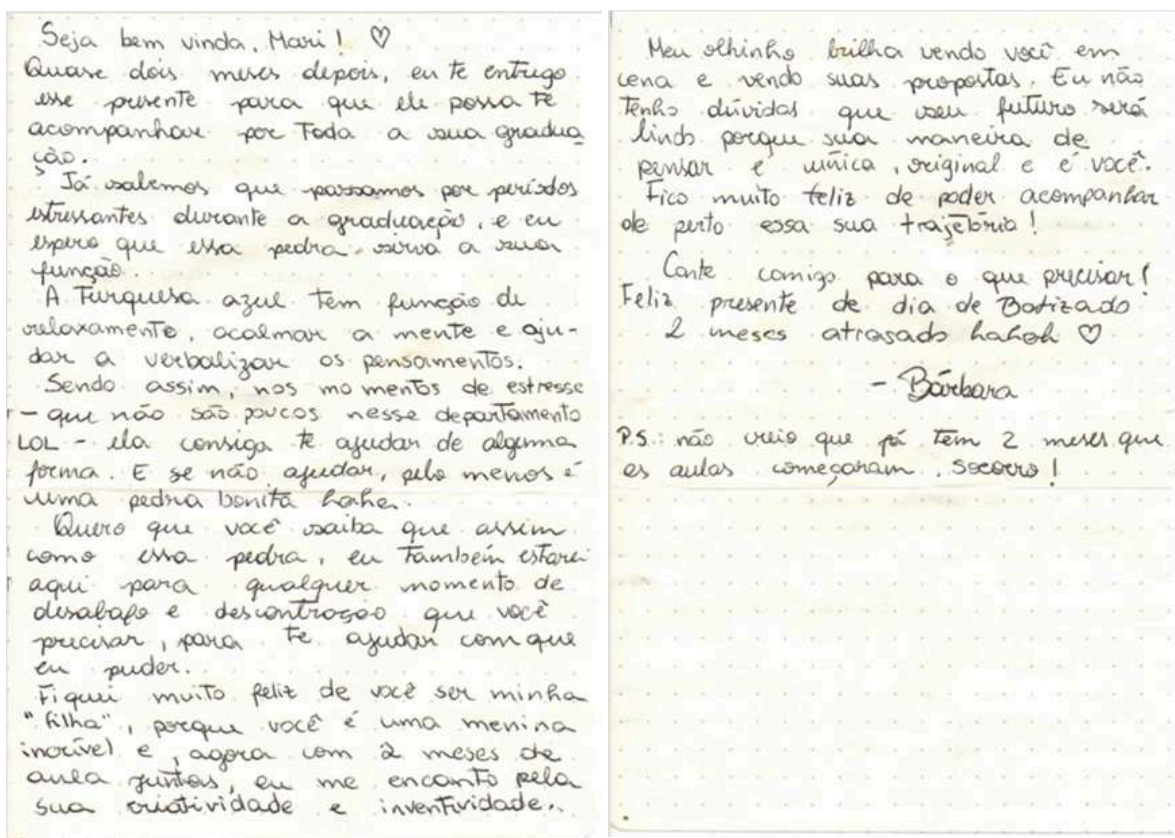 Seja bem vinda, Mari! ♡
Quase dois meses depois, eu te entrego
esse presente para que ele possa te
acompanhar por toda a sua gradua
ção.
Já sabemos que passamos por períodos
estressantes durante a graduação, e eu
espero que essa pedra sirva a sua
função.
A Turquesa azul tem função de
relaxamento, acalmar a mente e aju-
dar a verbalizar os pensamentos.
Sendo assim, nos momentos de estresse
- que não são poucos nesse departamento
LOL - ela consiga te ajudar de alguma
forma. E se não ajudar, pelo menos é
uma pedra bonita hahe.
Quero que você saiba que assim
como essa pedra, eu também estarei
aqui para qualquer momento de
desabafo e descontração que você
precisar, para te ajudar com que
eu puder.
Fiquei muito feliz de você ser minha
"filha", porque você é uma menina
incrível e, agora com 2 meses de
aula juntas, eu me encanto pela
sua criatividade e inventividade.
Meu olhinho brilha vendo você em
cena e vendo suas propostas. Eu não
tenho dúvidas que seu futuro será
lindo porque sua maneira de
pensar é única, original e é você.
Fico muito feliz de poder acompanhar
de perto essa sua trajetória!
Conte comigo para o que precisar!
Feliz presente de dia de Batizado
2 meses atrasado hahah ♡
- Bárbara
P.S.: não creio que já tem 2 meses que
as aulas começaram, socorro!